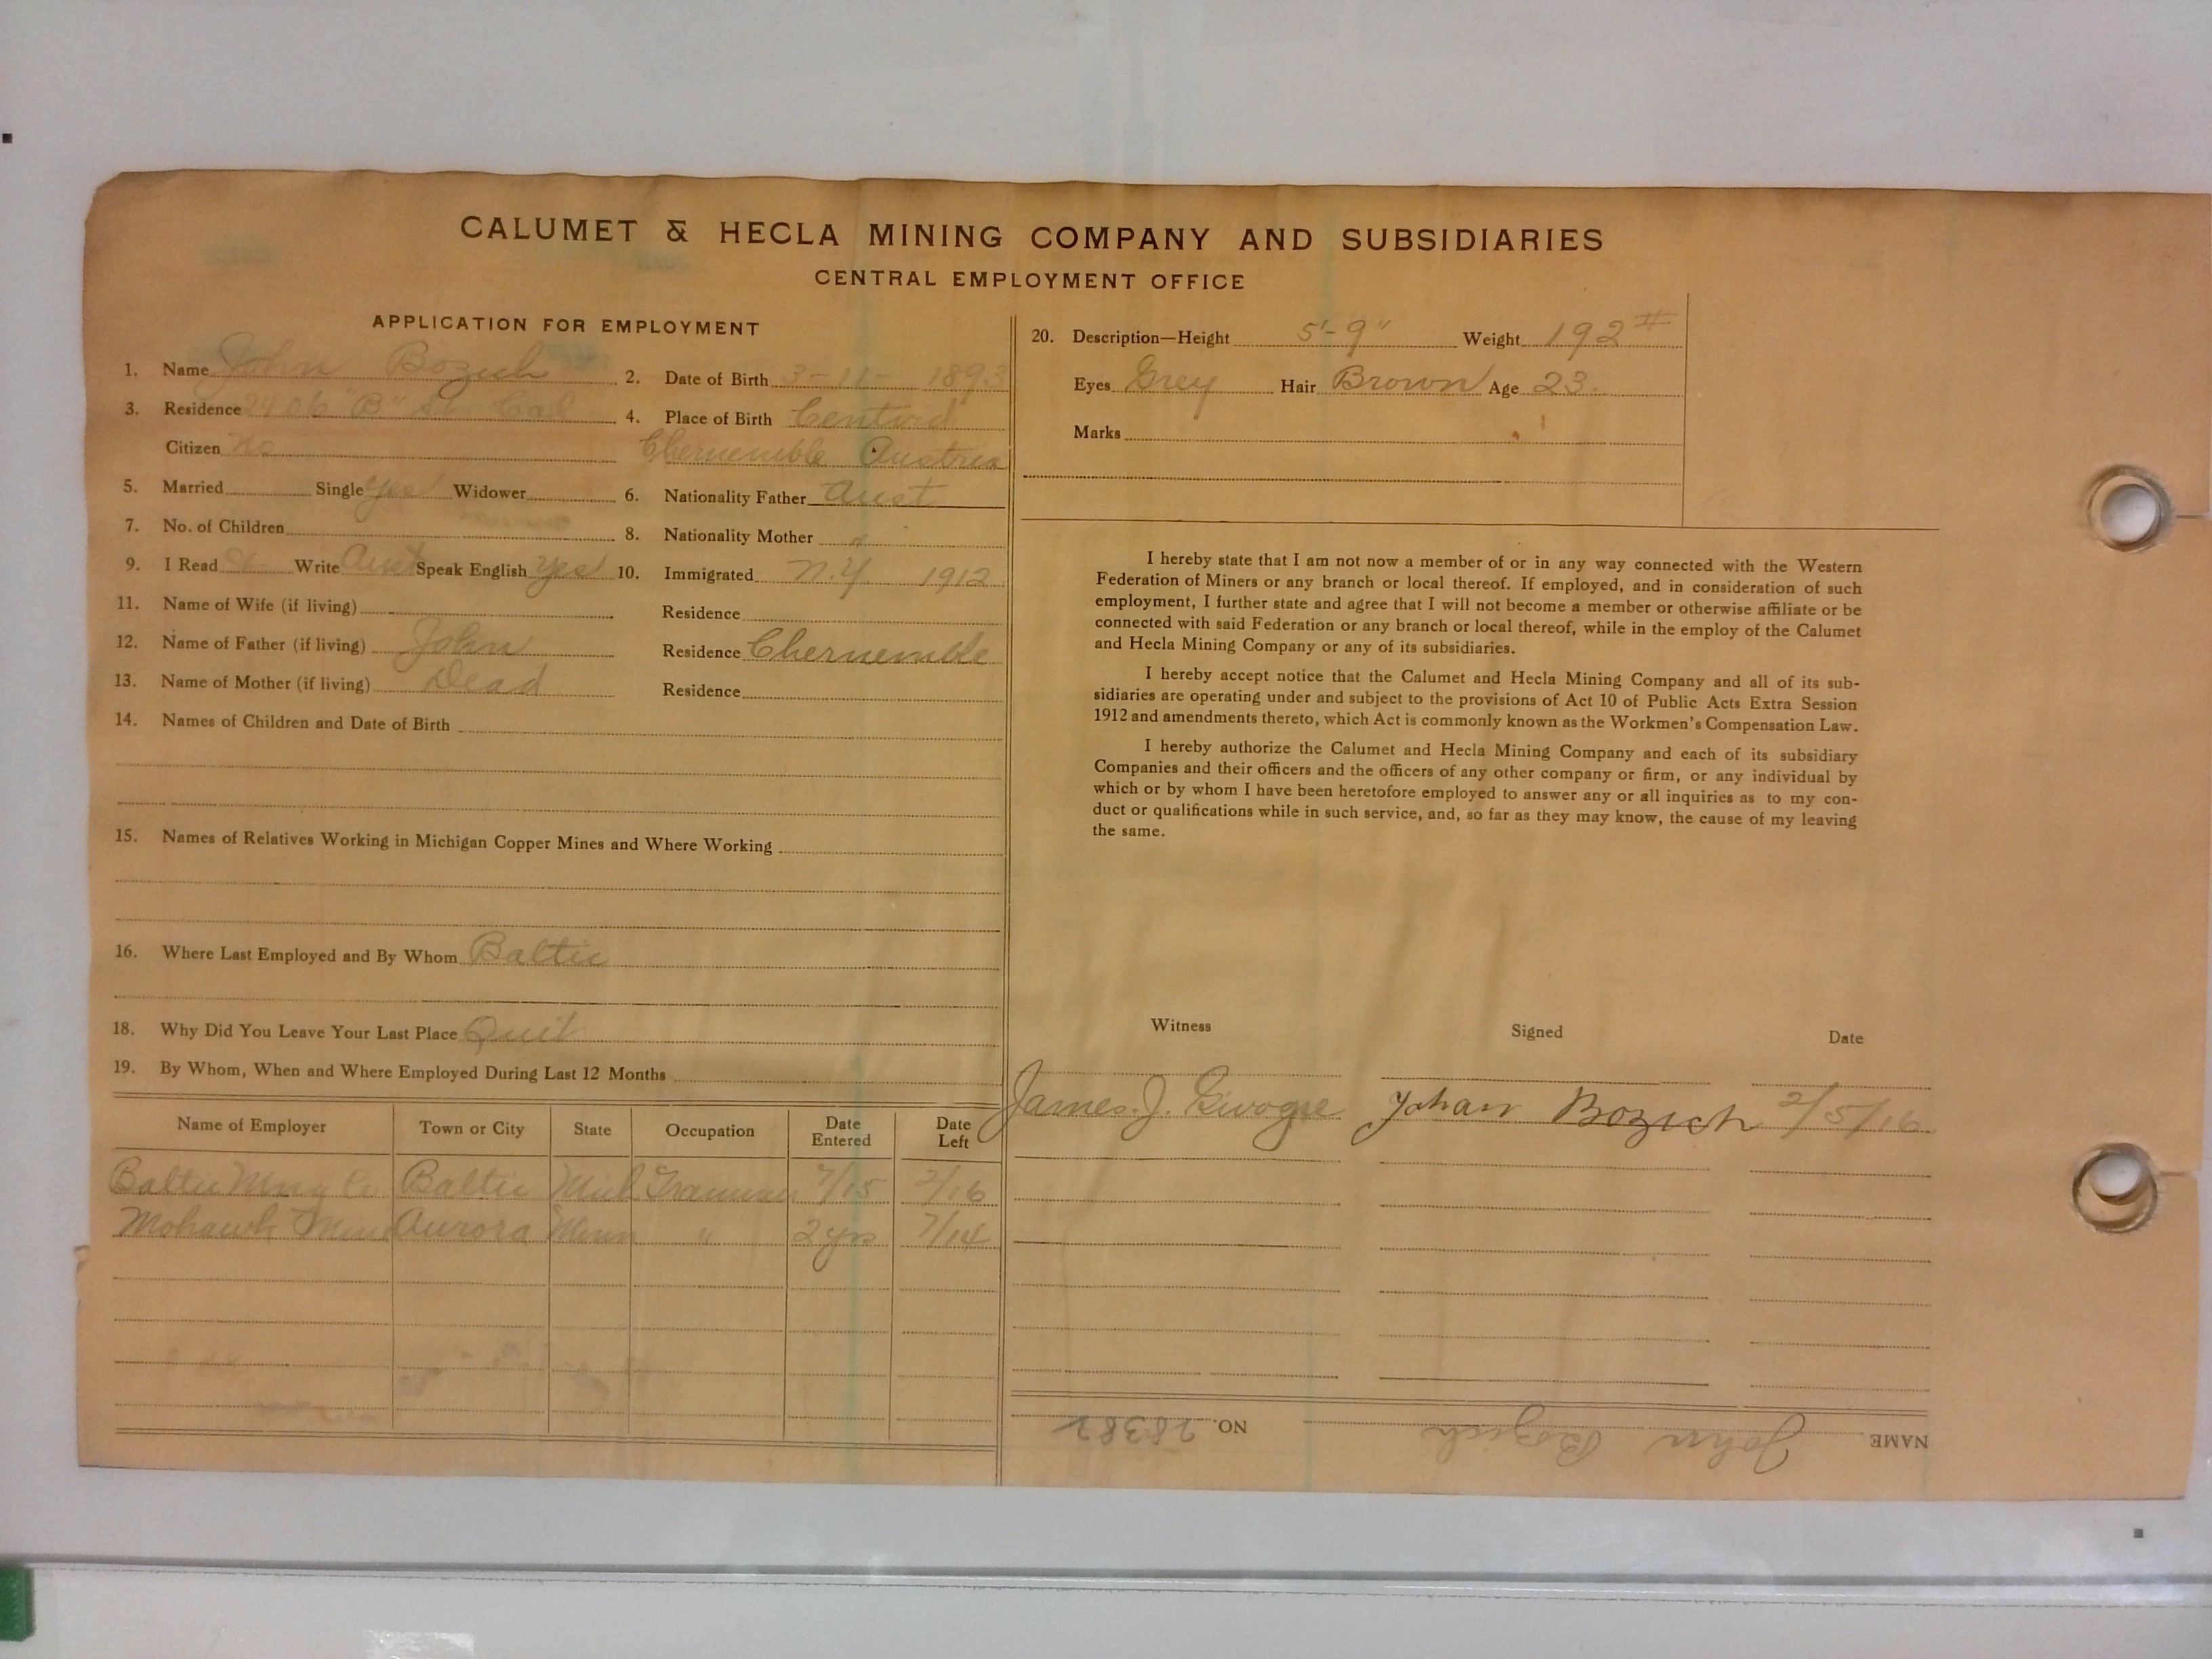 CALUMET & HECLA MINING COMPANY AND SUBSIDIARIES
CENTRAL EMPLOYMENT OFFICE
APPLICATION FOR EMPLOYMENT
1. Name John Bozich 2. Date of Birth 3-11-1893
3. Residence 2406 "B" St. Cal 4. Place of Birth
Citizen No Chernemble Austria
5. Married Single Yes Widower 6. Nationality Father Aust
7. No. of Children 8. Nationality Mother "
9. I Read Write Aust Speak English Yes 10. Immigrated N.Y. 1912
11. Name of Wife (if living) Residence
12. Name of Father (if living) John Residence Chernemble
13. Name of Mother (if living) Dead Residence
14. Names of Children and Date of Birth
15. Names of Relatives Working in Michigan Copper Mines and Where Working
16. Where Last Employed and By Whom Baltic
18. Why Did You Leave Your Last Place Quit
19. By Whom, When and Where Employed During Last 12 Months
Name of Employer Town or City State Occupation Date Entered Date Left
Baltic Mng Co Baltic Mich Trammer 7/15 2/16
Mohawk Mine Aurora Minn " 2 yrs 7/14
20. Description—Height 5'-9" Weight 192 #
Eyes Grey Hair Brown Age 23.
Marks
I hereby state that I am not now a member of or in any way connected with the Western
Federation of Miners or any branch or local thereof. If employed, and in consideration of such
employment, I further state and agree that I will not become a member or otherwise affiliate or be
connected with said Federation or any branch or local thereof, while in the employ of the Calumet
and Hecla Mining Company or any of its subsidiaries.
I hereby accept notice that the Calumet and Hecla Mining Company and all of its sub-
sidiaries are operating under and subject to the provisions of Act 10 of Public Acts Extra Session
1912 and amendments thereto, which Act is commonly known as the Workmen's Compensation Law.
I hereby authorize the Calumet and Hecla Mining Company and each of its subsidiary
Companies and their officers and the officers of any other company or firm, or any individual by
which or by whom I have been heretofore employed to answer any or all inquiries as to my con-
duct or qualifications while in such service, and, so far as they may know, the cause of my leaving
the same.
Witness Signed Date
James. J. Johan Bozich 2/5/16
NAME John Bozich NO. 28382